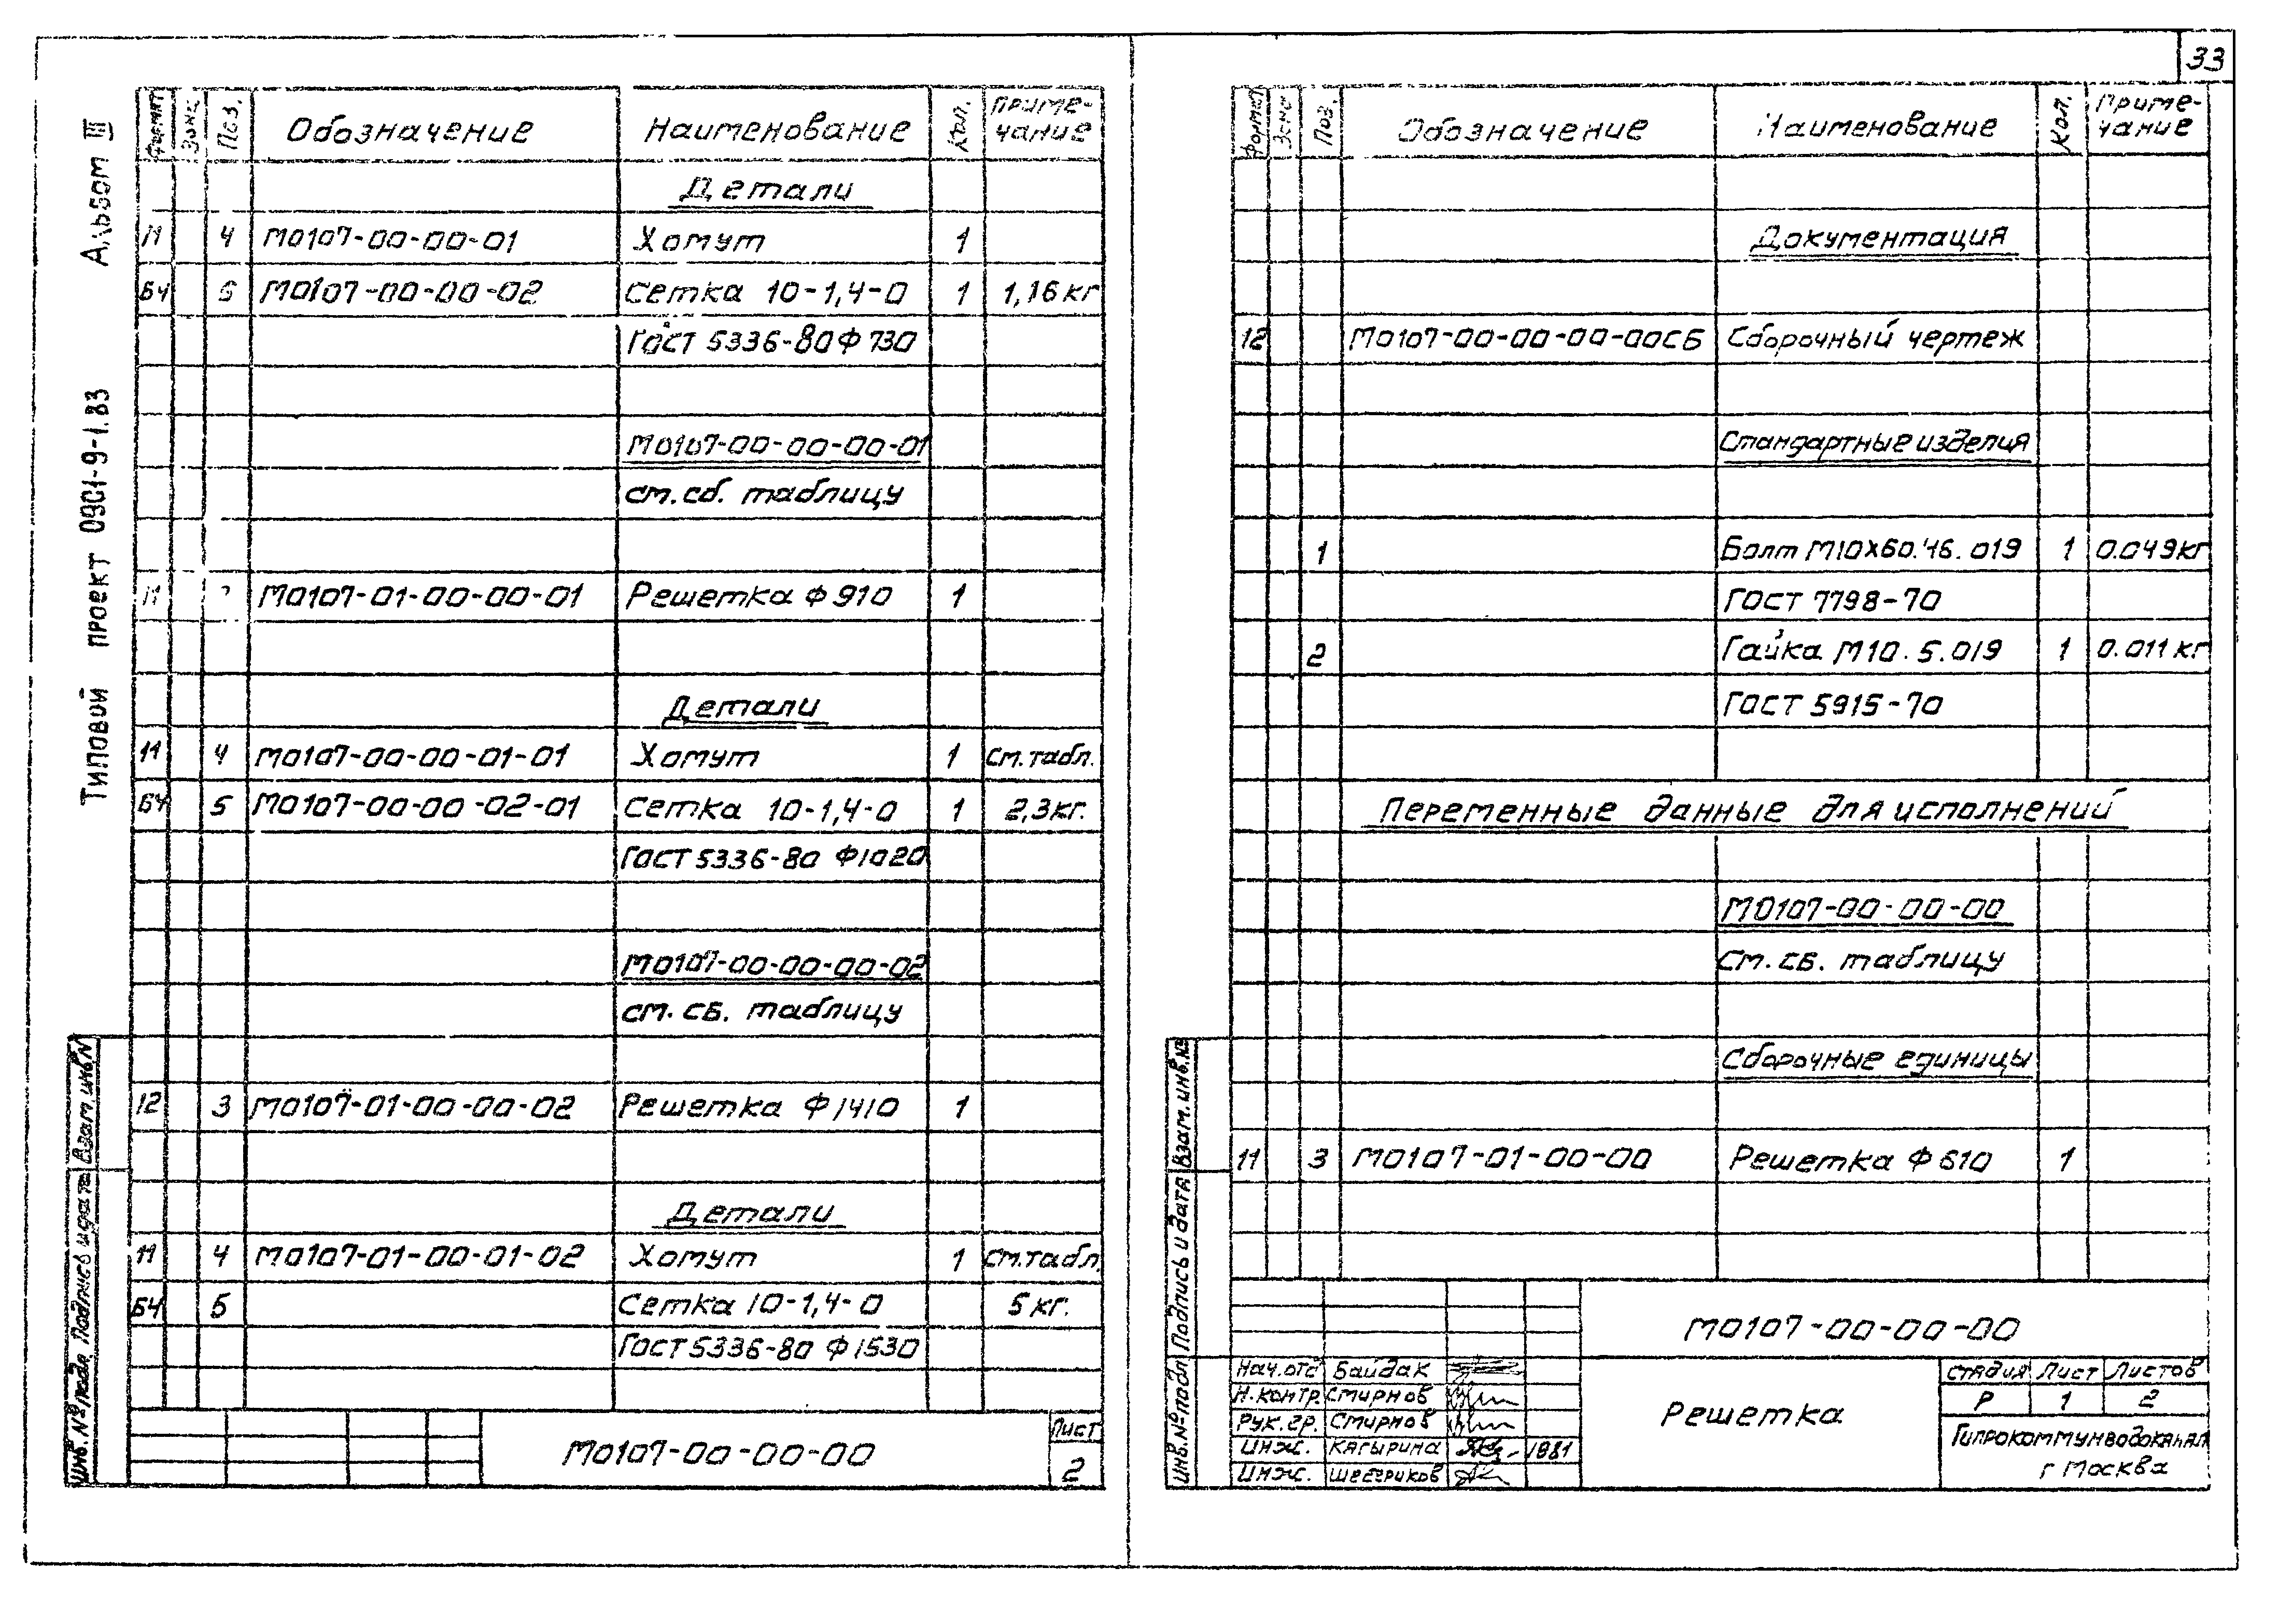 33
Альбом III
Типовой проект 0901-9-1.83
Формат Зона Поз. Обозначение Наименование Кол. Приме-
чание
Детали
11 4 М0107-00-00-01 Хомут 1
БЧ 5 М0107-00-00-02 Сетка 10-1,4-0 1 1,16 кг
Гост 5336-80 Ф 730
М0107-00-00-00-01
см. сб. таблицу
11 М0107-01-00-00-01 Решетка Ф 910 1
Детали
11 4 М0107-00-00-01-01 Хомут 1 см. табл.
БЧ 5 М0107-00-00-02-01 Сетка 10-1,4-0 1 2,3 кг.
Гост 5336-80 Ф1020
М0107-00-00-00-02
см. сб. таблицу
12 3 М0107-01-00-00-02 Решетка Ф 1410 1
Детали
11 4 М0107-01-00-01-02 Хомут 1 см. табл.
БЧ 5 Сетка 10-1,4-0 5 кг.
Гост 5336-80 Ф 1530
М0107-00-00-00
Лист
2
Инв. № подл Подпись и дата Взам. инв. N
Формат Зона Поз. Обозначение Наименование Кол. Приме-
чание
Документация
12 М0107-00-00-00-00СБ Сборочный чертеж
Стандартные изделия
1 Болт М10х60.46.019 1 0.049 кг
Гост 7798-70
2 Гайка М10.5.019 1 0.011 кг
Гост 5915-70
Переменные данные для исполнений
М0107-00-00-00
см. сб. таблицу
Сборочные единицы
11 3 М0107-01-00-00 Решетка Ф 610 1
М0107-00-00-00
Нач. отд Байдак
Н. контр. Смирнов
Рук. гр. Смирнов
Инж. Кагырина 1981
Инж.
Решетка
Стадия Лист Листов
Р 1 2
Гипрокоммунводоканал
г Москва
Инв. № подл Подпись и дата Взам. инв. №